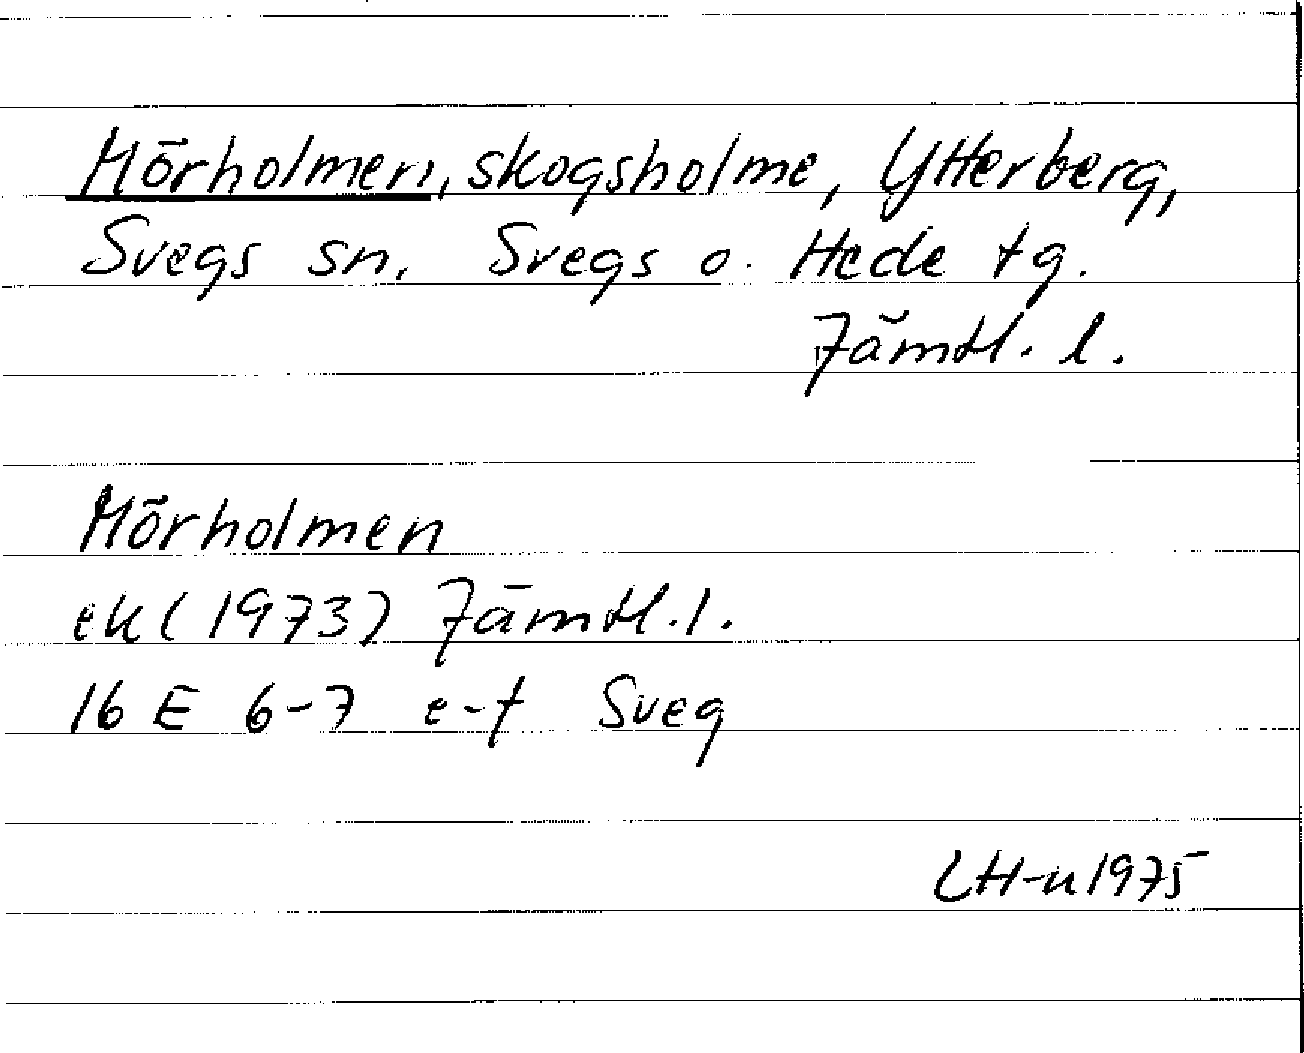 Mörholmen, skogsholme, Ytterberg,
Svegs sn, Svegs o. Hede tg.
Jämtl. l.
Mörholmen
ek (1973) Jämtl. l.
16 E 6-7 e-f Sveg
LH-n 1975